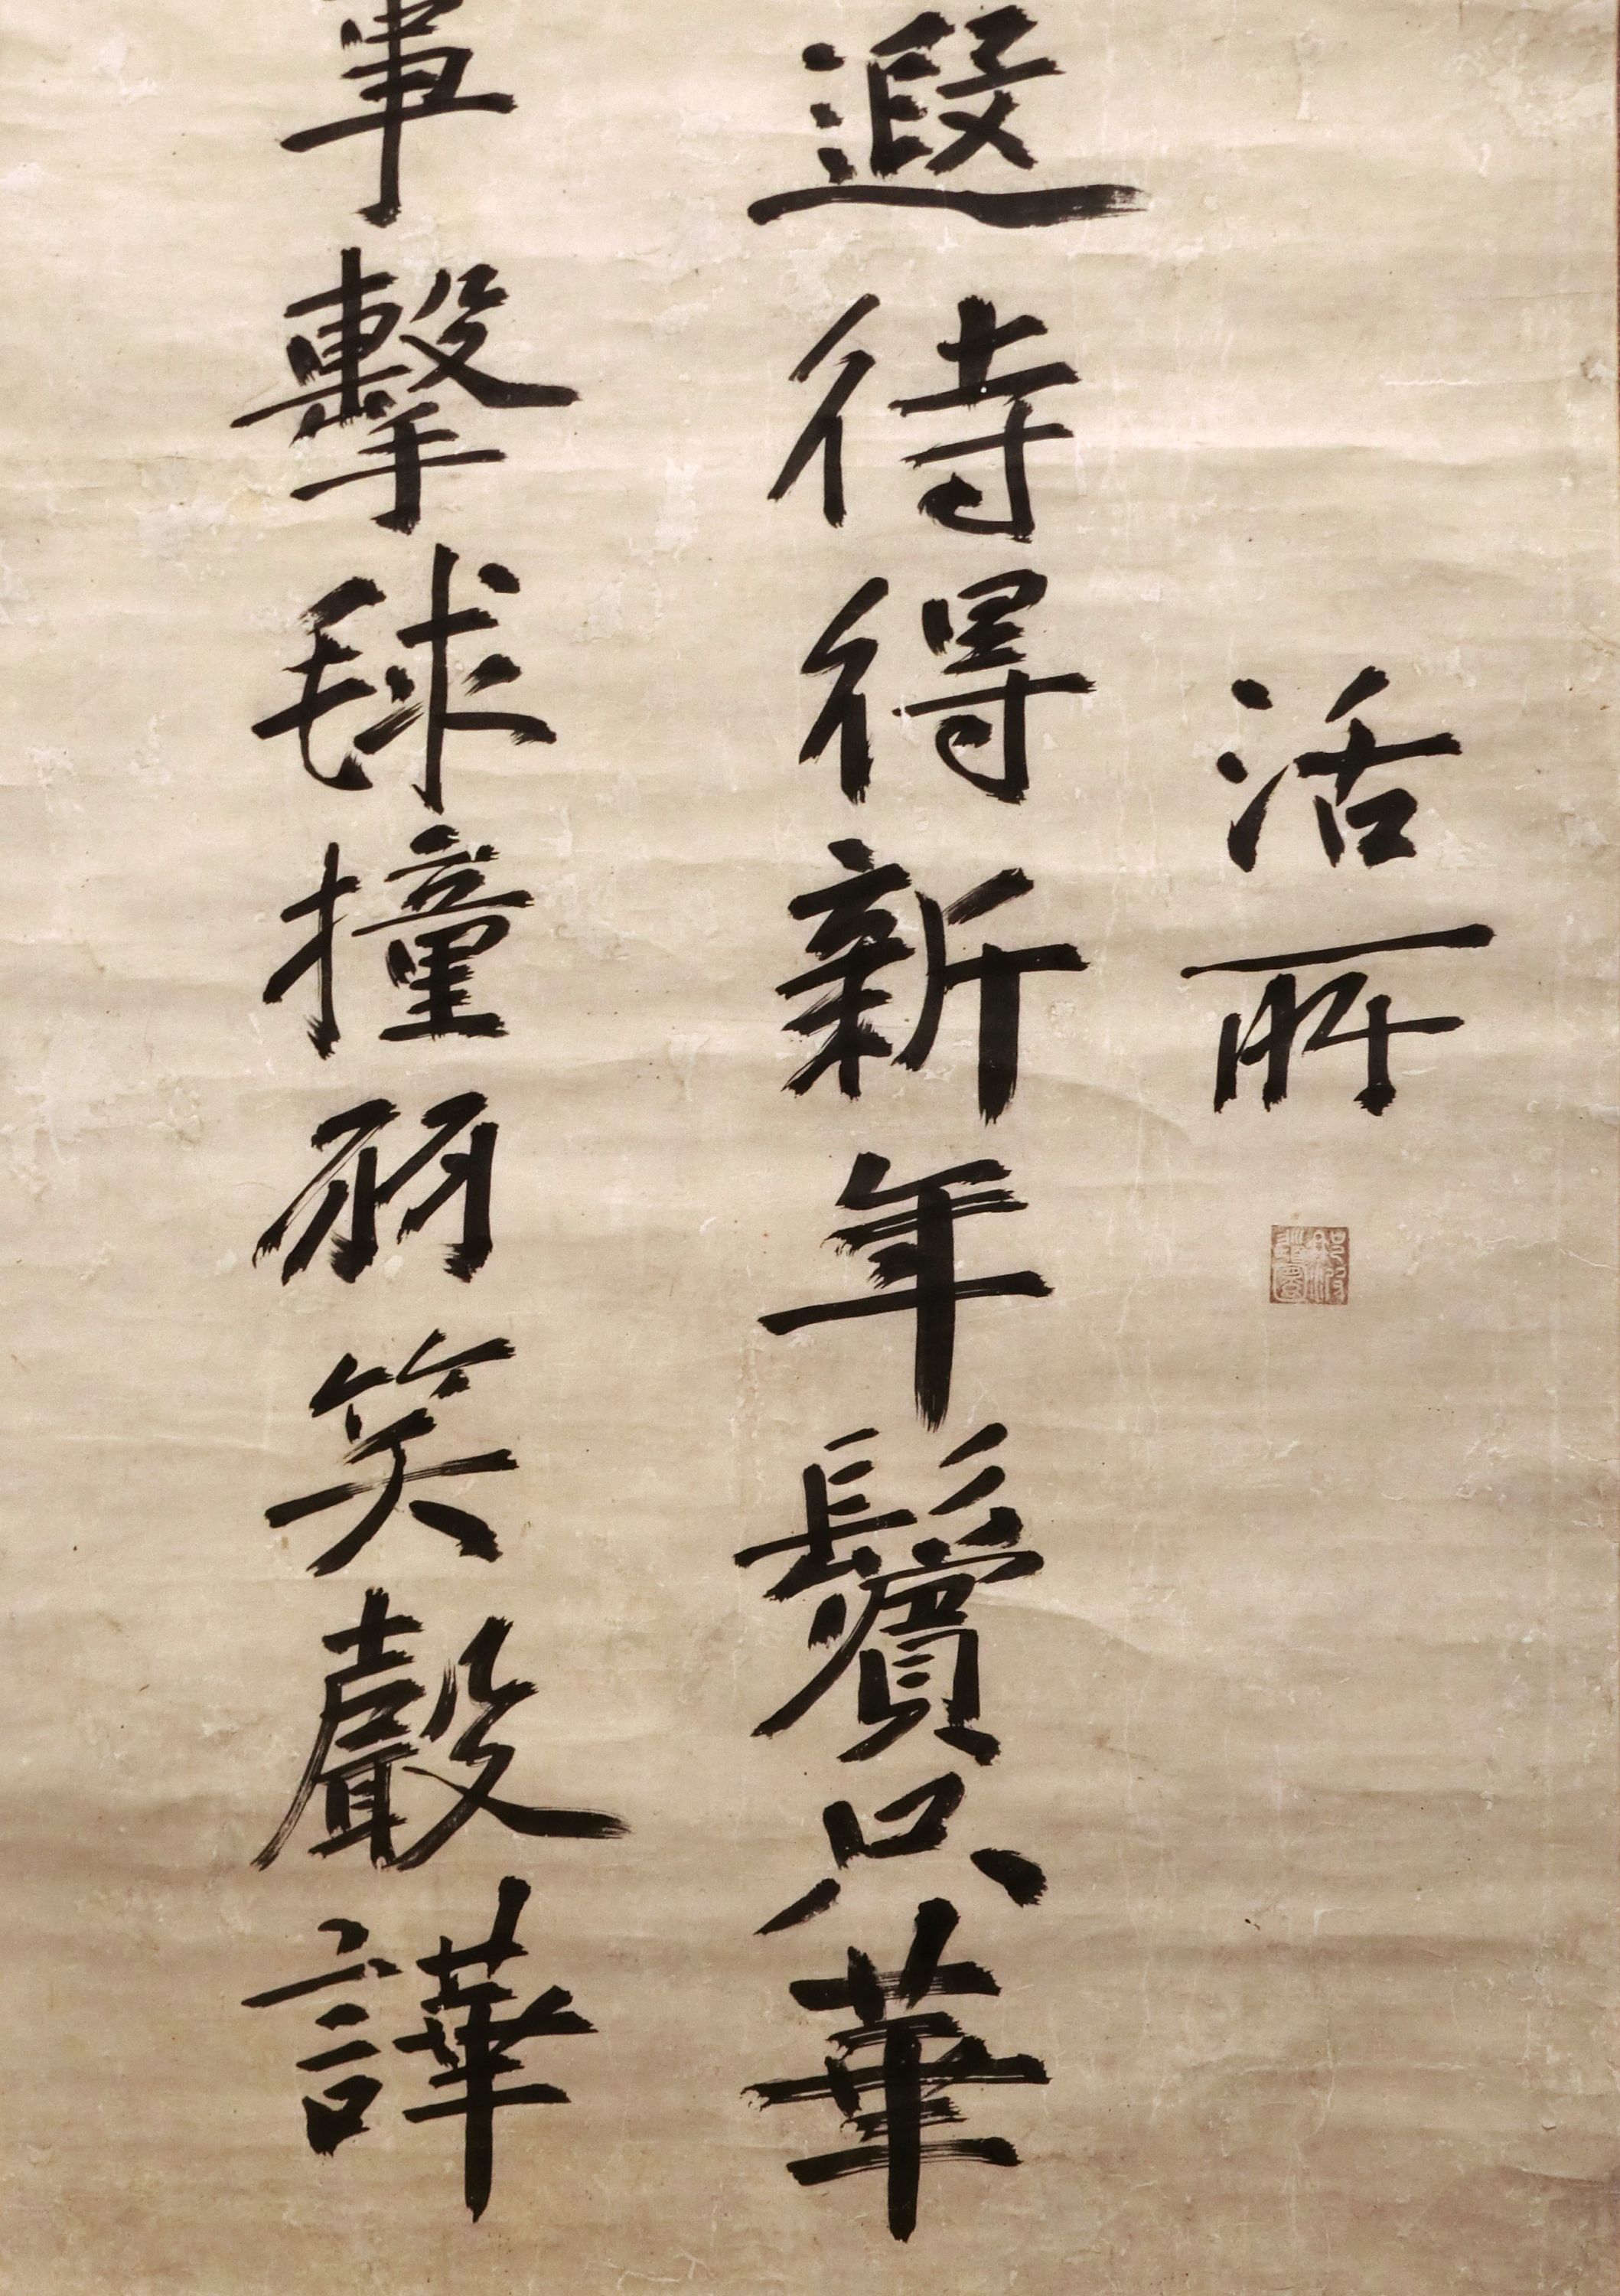 活所
遐待得新年鬢只華
事擊毬撞羽笑聲譁